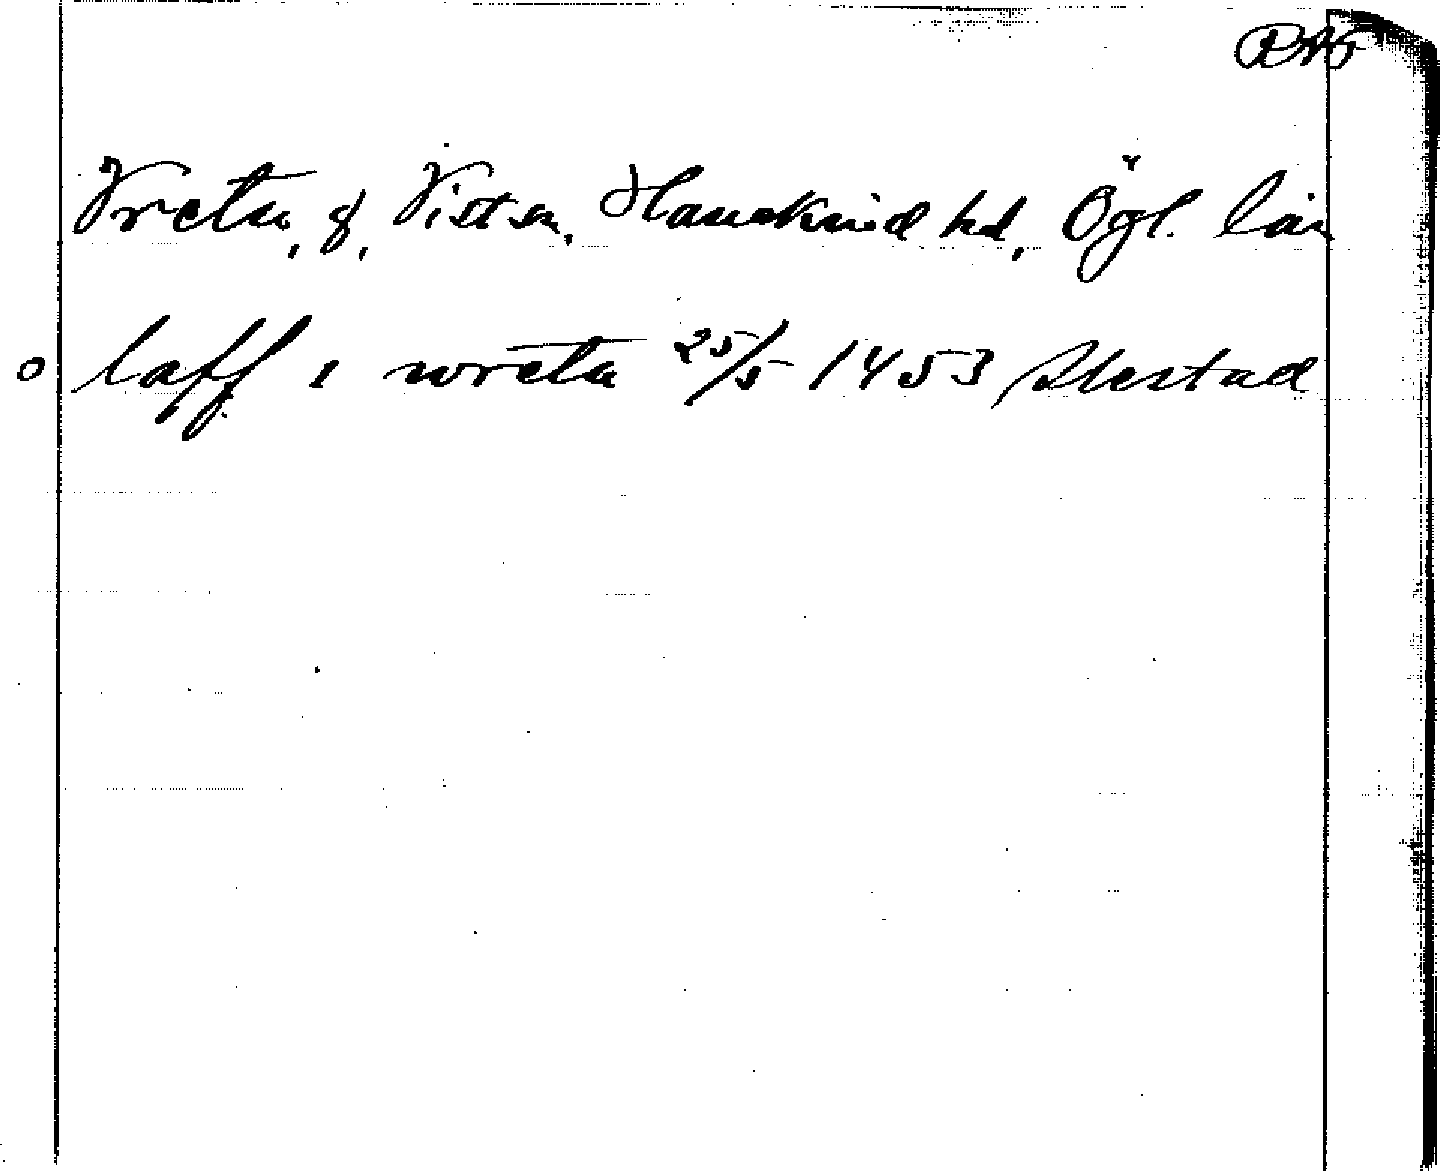 RAP
Vreta, g, Vist sn, Hanekind hd, Ögl. län
o laff i wreta 25/5 1453 Slestad